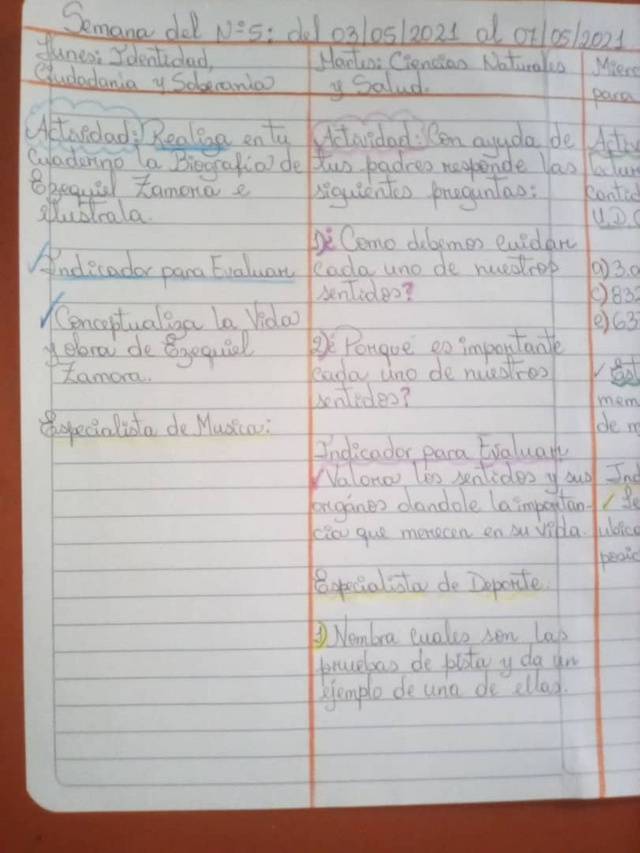 Semana del N°5: del 03/05/2021 al 07/05/2021
Lunes: Identidad,
Ciudadania y Soberania
Actividad: Realiza en tu
cuaderno la Biografia de
Ezequiel Zamora e
ilustrala.
Indicador para Evaluar
✓Conceptualiza la Vida
y obra de Ezequiel
Zamora.
Especialista de Musica:
Martes: Ciencias Naturales
y Salud.
Actividad: Con ayuda de
tus padres responde las
siguientes preguntas:
1)¿Como debemos cuidar
cada uno de nuestros
sentidos?
2)¿Porqué es importante
cada uno de nuestros
sentidos?
Indicador para Evaluar
✓Valora los sentidos y sus
orgános dandole la importan-
cia que merecen en su vida.
Especialista de Deporte:
1) Nombra cuales son las
pruebas de pista y da un
ejemplo de una de ellas.
Mierc
para
Activ
contid
U.D.C
a) 3.0
c) 832
e) 63
✓ Est
mem
de m
Ind
✓ Le
ubica
posic